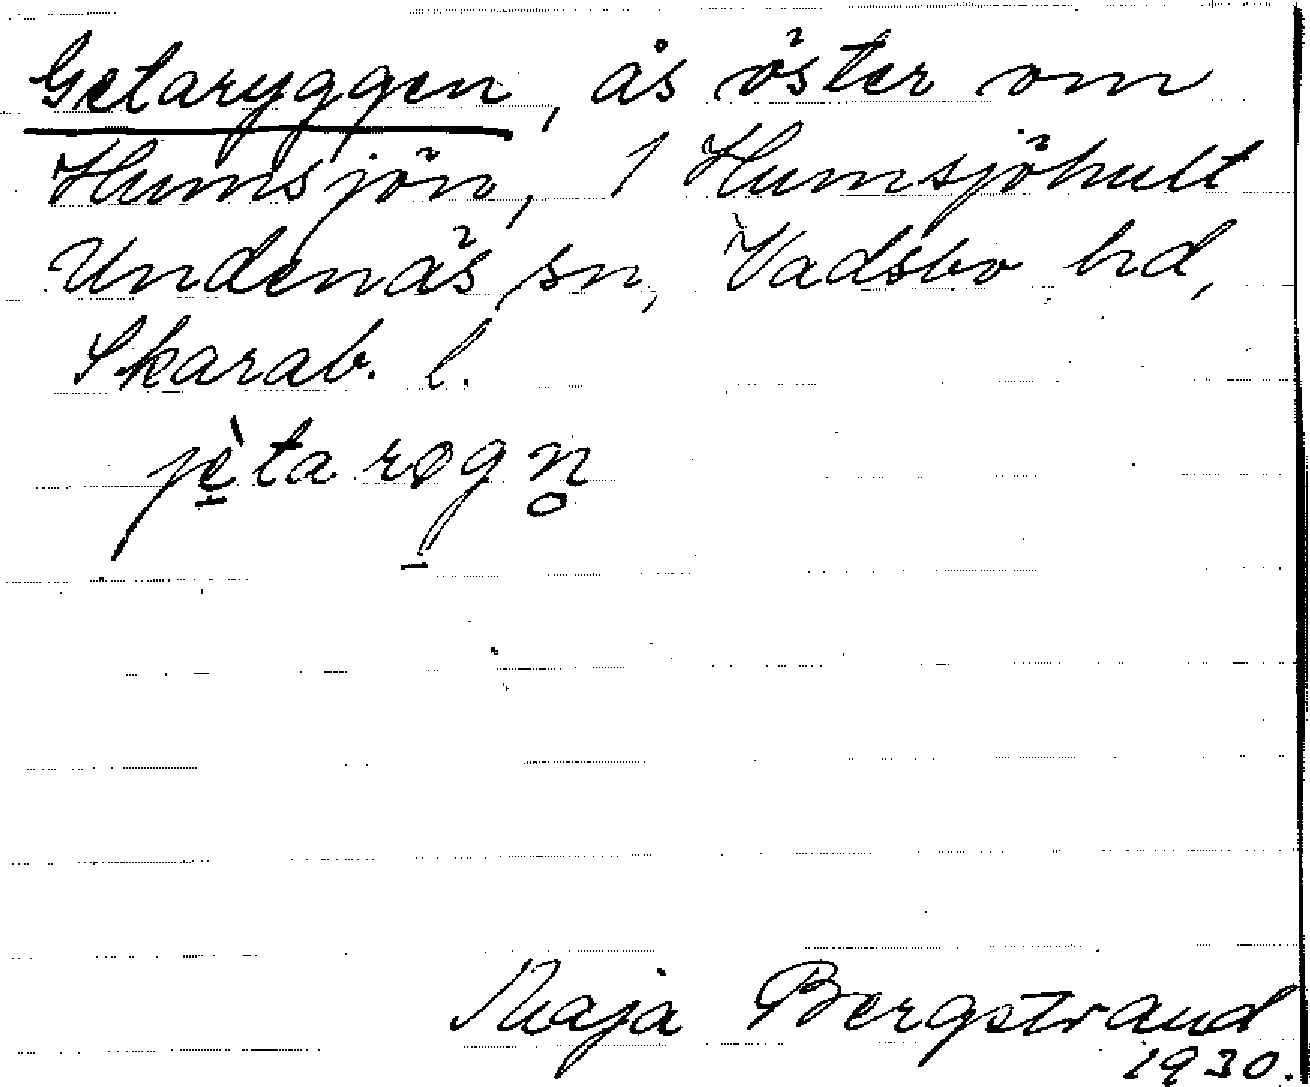 Getaryggen, ås öster om
Humsjön, 1 Humsjöhult
Undenäs sn, Vadsbo hd,
Skarab. l.
jèta røgn̥
Maja Bergstrand
1930.